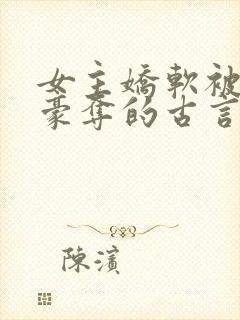 女主嬌軟被
豪奪的古言
陳濱